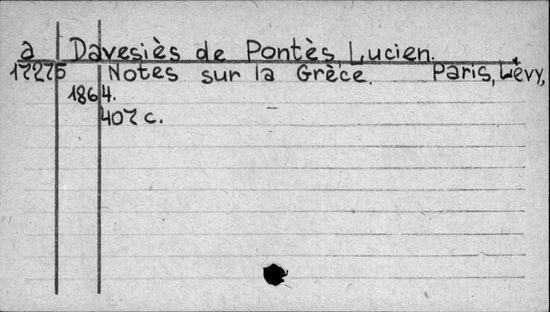 a Davesiès de Pontès, Lucien.
17275 Notes sur la Grèce. Paris, Lévy,
1864.
407 c.